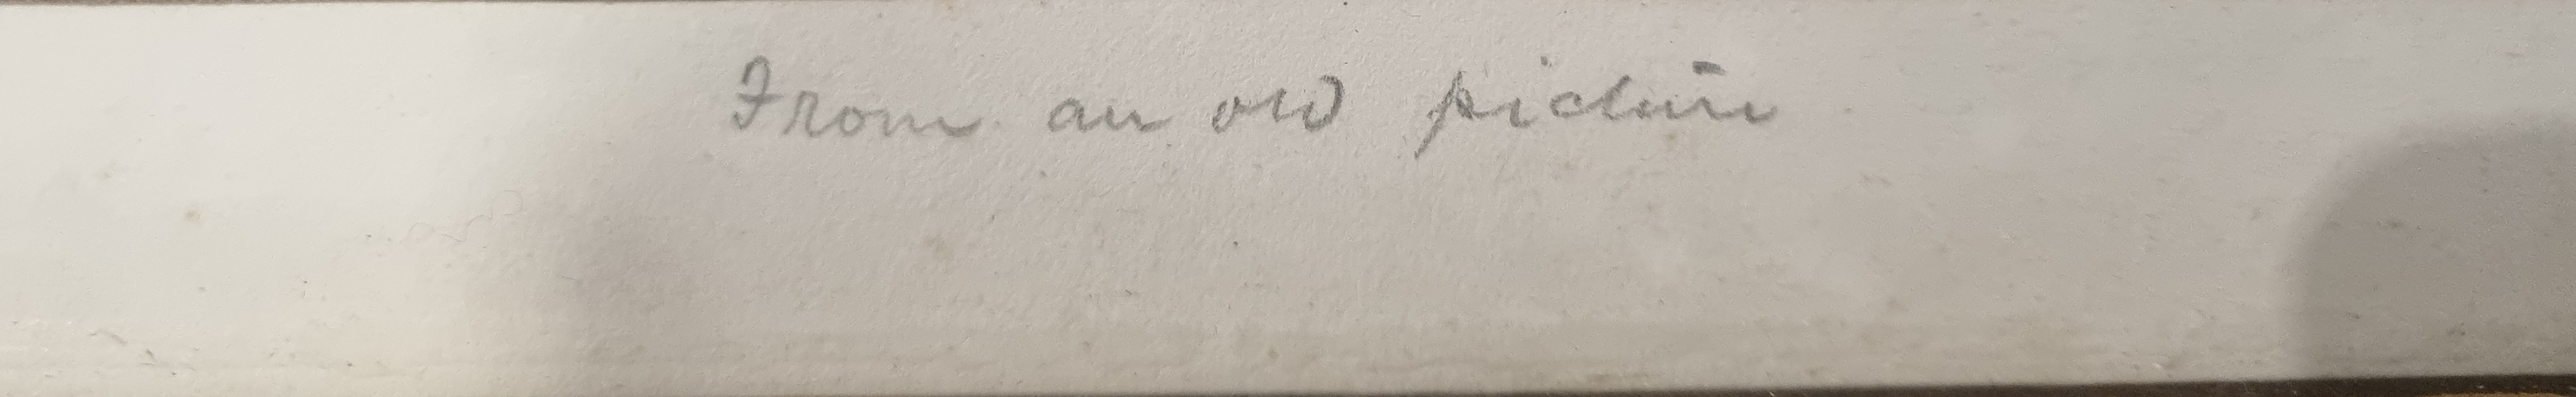 From an old picture